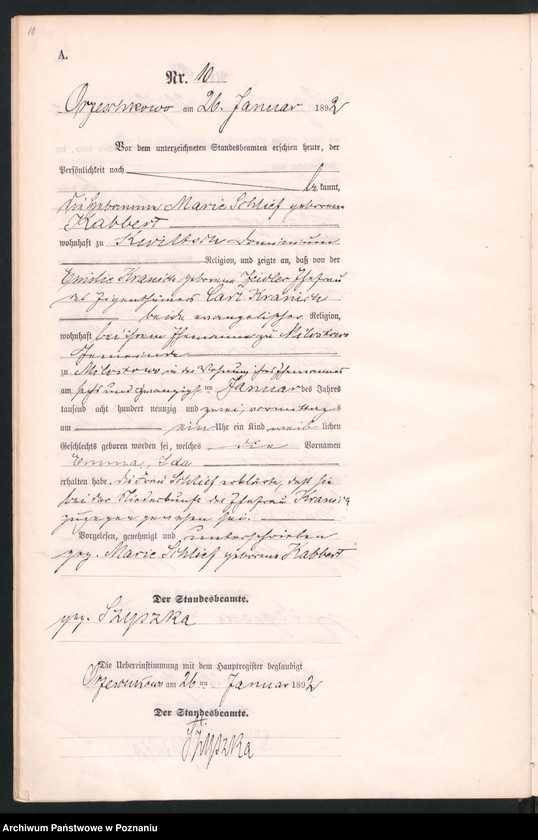 10
A.
Nr. 10
Orzeschkowo am 26. Januar 1892
Vor dem unterzeichneten Standesbeamten erschien heute, der
Persönlichkeit nach
be kannt,
die Hebamme Marie Schlief geborene
Kabbert
wohnhaft zu Kwiltsch Dominium
Religion, und zeigte an, daß von der
Emilie Kranich geborene Zeidler Ehefrau
des Eigenthümers Carl Kranich
beide evangelischer Religion,
wohnhaft bei ihrem Ehemanne zu Milostowo
Gemeinde
zu Milostowo in der Wohnung ihres Ehemannes
am sechs und zwanzigsten Januar des Jahres
tausend acht hundert neunzig und zwei, vormittag s
um ein Uhr ein Kind weib lichen
Geschlechts geboren worden sei, welches die Vornamen
Emma, Ida
erhalten habe. Die Frau Schlief erklärte, daß sie
bei der Niederkunft der Ehefrau Kranich
zugegen gewesen sei.
Vorgelesen, genehmigt und unterschrieben
gez. Marie Schlief geborene Kabbert
Der Standesbeamte.
gez. Szyszka
Die Uebereinstimmung mit dem Hauptregister beglaubigt
Orzeschkowo am 26 ten Januar 1892
Der Standesbeamte.
Szyszka
Archiwum Państwowe w Poznaniu